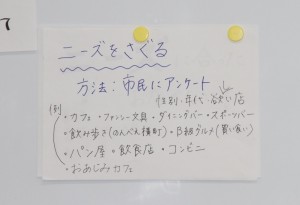 7
ニーズをさぐる
方法：市民にアンケート
性別・年代・欲しい店
例）
・カフェ ・ファンシー文具 ・ダイニングバー ・スポーツバー
・飲み歩き(のんべえ横町) ・B級グルメ(買い食い)
・パン屋 ・飲食店 ・コンビニ
・おあじみカフェ